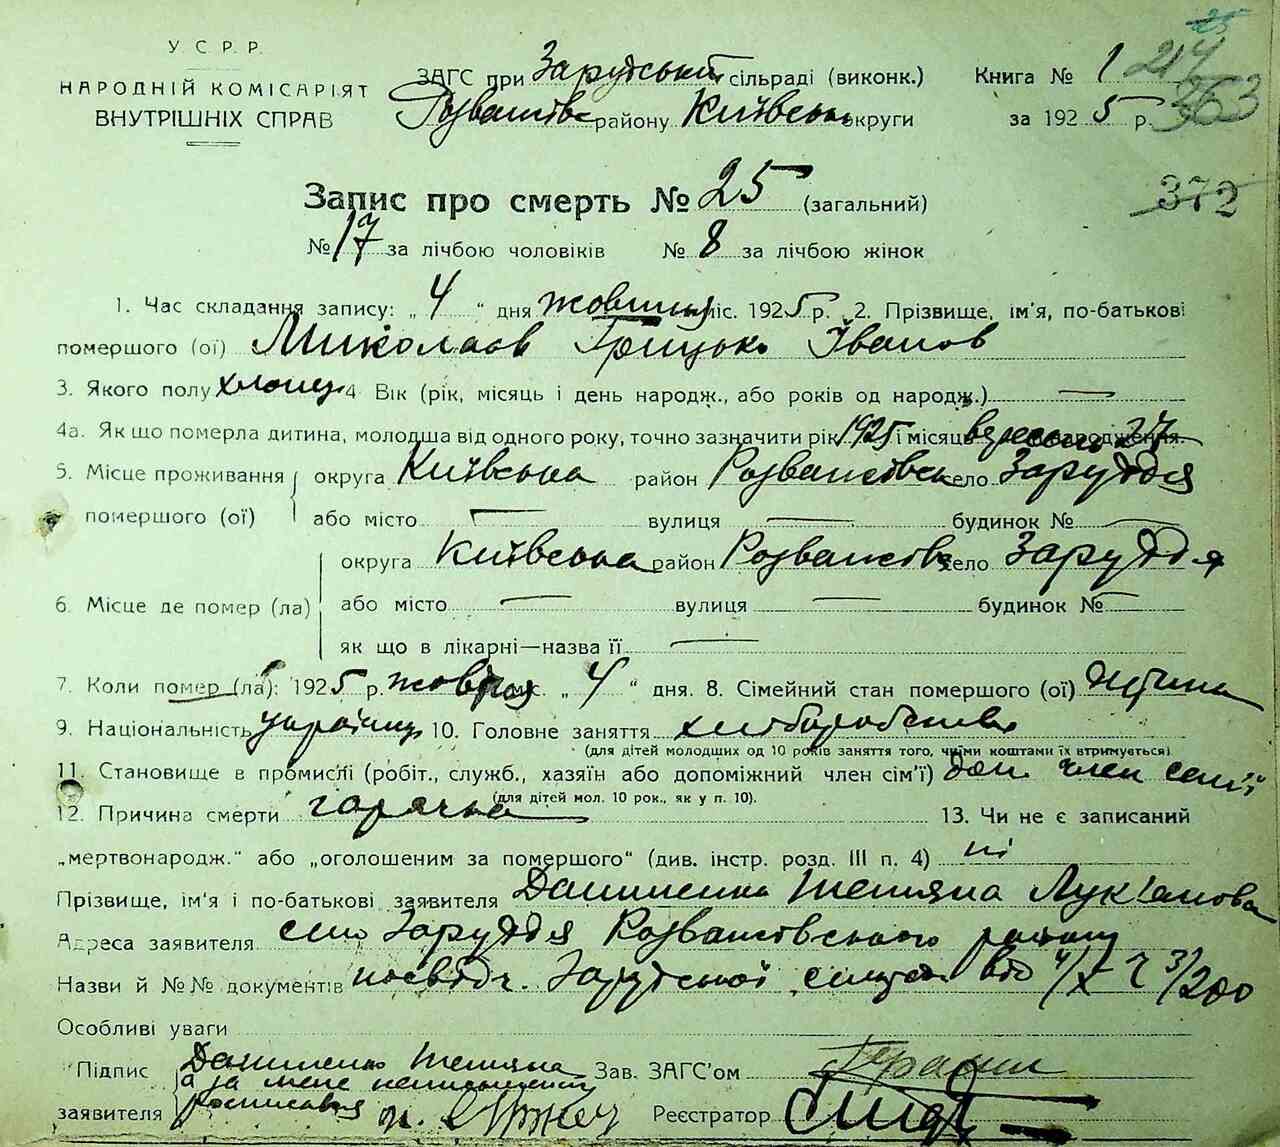 У. С. Р. Р.
НАРОДНІЙ КОМІСАРІЯТ
ВНУТРІШНІХ СПРАВ
ЗАГС при Зарудський сільраді (виконк.)
Розважівс району Київськ округи
Книга № 1
за 1925 р.
214
363
372
Запис про смерть № 25 (загальний)
№ 17 за лічбою чоловіків № 8 за лічбою жінок
1. Час складання запису: „ 4 “ дня жовтня міс. 1925 р. 2. Прізвище, ім'я, по-батькові
помершого (ої) Миколаєв Грицько Іванов
3. Якого полу хлопец 4 Вік (рік, місяць і день народж., або років од народж.)
4а. Як що померла дитина, молодша від одного року, точно зазначити рік 1925 і місяць вересень 27 народження.
5. Місце проживання округа Київська район Розважівськ село Заруддя
помершого (ої) або місто вулиця будинок №
округа Київська район Розважівс село Заруддя
6. Місце де помер (ла) або місто вулиця будинок №
як що в лікарні—назва її
7. Коли помер (ла): 1925 р. жовтня міс. „ 4 “ дня. 8. Сімейний стан помершого (ої) дитина
9. Національність українец 10. Головне заняття хліборобство
(для дітей молодших од 10 років заняття того, чиїми коштами їх втримується)
11. Становище в промислі (робіт., служб., хазяїн або допоміжний член сім'ї) доп. член семї
(для дітей мол. 10 рок., як у п. 10).
12. Причина смерти горячка 13. Чи не є записаний
„мертвонародж.“ або „оголошеним за помершого“ (див. інстр. розд. III п. 4) ні
Прізвище, ім'я і по-батькові заявителя Даниленко Тетяна Лук'янова
Адреса заявителя село Заруддя Розважівського району
Назви й №№ документів посвідч. Зарудської сільради від 4/X ч 31/200
Особливі уваги
Підпис Даниленко Тетяна Зав. ЗАГС'ом
а за мене неписьменну
заявителя росписався Реєстратор